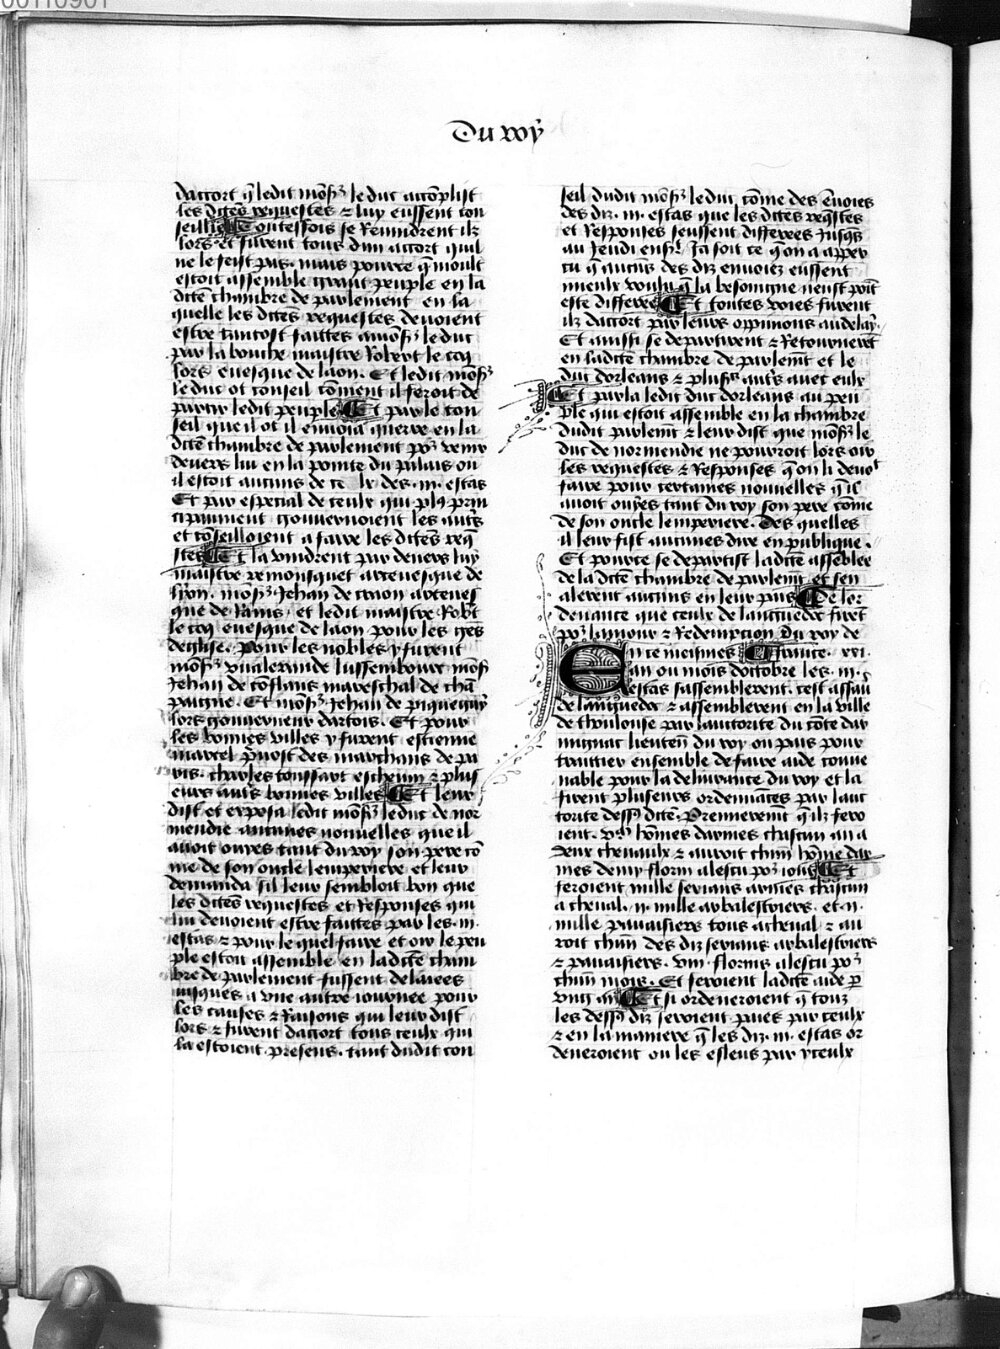 00110901
Du roy
daccort q̃ ledit mons̃ le duc acõplist
les dittes requestes ⁊ luy eussent con
seillie Toutesfois se Reuindrent ilz
lors et furent tous dun accort quil
ne le feist pas. mais pource q̃ moult
estoit assemble grant peuple en la
ditte chambre de parlement en la
quelle les dittes requestes deuoient
estre tantost faittes a mons̃ le duc
par la bouche maistre Robert le coq
lors euesque de laon. Et ledit mons̃
le duc ot conseil cõment il feroit de
partir ledit peuple Et par le con
seil que il ot il enuoia querre en la
ditte chambre de parlement po᷑ venir
deuers lui en la pointe du palais ou
il estoit aucuns de ce lx des .iii. estas
Et par especial de ceulx qui plus prin
cipaument gouuernoient les autres
et cõseilloient a faire les dittes req̃
stes Et la vindrent par deuers luy
maistre remonsquet arceuesque de
lyon. mons̃ Jehan de craon arceues
que de Rains. et ledit maistre Rob̃t
le coq euesque de laon pour les ges
deglise. pour les nobles y furent
mons̃ valerande lussembourc mons̃
Jehan de cõflans mareschal de chã
paigne. Et mons̃ Jehan de piquegny
lors gouuerneur dartois. Et pour
les bonnes villes y furent estienne
marcel p̃uost des marchans de pa
ris. charles toussart escheuin ⁊ plus
eurs autres bonnes villes Et leur
dist et exposa ledit mons̃ le duc de nor
mendie aucunes nouuelles que il
auoit oures tant du roy son pere cõ
me de son oncle lempereire et leur
demanda sil leur sembloit bon que
les dittes requestes et Responses qui
lui deuoient estre faittes par les .iii.
estas ⁊ pour lequel faire et oir le peu
ple estoit assemble en laditte cham
bre de parlement fussent delaiees
iusques a vne autre iournee pour
les causes ⁊ Raisons qui leur dist
lors ⁊ furent daccort tous ceulx qui
la estoient presens. tant dudit con
seil dudit mons̃ le duc cõme des enuoies
des diz .iii. estas que les dittes req̃stes
et Responses feussent differees iusq̃s
au Jeudi ens̃. Ja soit ce q̃ on a apper
cu q̃ aucũs des diz enuoiez eussent
mieulx voulu q̃ la besoingne neust point
este differee Et toutes voies furent
ilz daccort par leurs oppinions au delay.
Et ainsi se departirent ⁊ Retournerẽt
en laditte chambre de parlemẽt et le
duc dorleans ⁊ plus̃s autr̃s auec eulx
Et parla ledit duc dorleans au peu
ple qui estoit assemble en la chambre
dudit parlemt̃ ⁊ leur dist que mons̃ le
duc de normendie ne pourroit lors oir
les requestes ⁊ Responses q̃ on li deuoit
faire pour certaines nouuelles q̃ il
auoit ouyes tant du roy son pere cõme
de son oncle lempereire. Des quelles
il leur fist aucunes dire en publique.
Et pource se departist laditte assẽblee
de la ditte chambre de parlemt̃ et sen
alerent aucuns en leur pais De lor
denance que ceulx de languedoc firẽt
po᷑ lamour ⁊ Redempcion Du roy de
En ce meismes France. xvi.
an ou mois doctobre les .iii.
estas sassemblerent. cest assau
de languedoc ⁊ assemblerent en la ville
de thoulouse par lauctorite du cõte dar
mignac lieuten̄ du roy ou pais pour
traittier ensemble de faire aide conue
nable pour la deliurance du roy et la
firent pluseurs ordenances par lauc
torite dess̃ ditte. Premieremt̃ q̃ ilz fero
ient. vᵐ hõmes darmes chascun an a
deux cheuaulx ⁊ auroit chũn hõme dar
mes demy florin alescu po᷑ iour Et
feroient mille serians armes chascun
a cheual. ii. mille arbalestriers. et ii.
mille pauaisiers tous acheual ⁊ au
roit chũn des diz serians arbalestriers
⁊ pauaisiers. viii. florins alescu po᷑
chũn mois. Et feroient laditte aide p̲
vng an Et si ordeneroient q̃ touz
les dess̃ diz seroient paies par ceulx
⁊ en la maniere q̃ les diz .iii. estas or
deneroient ou les esleus par yceulx